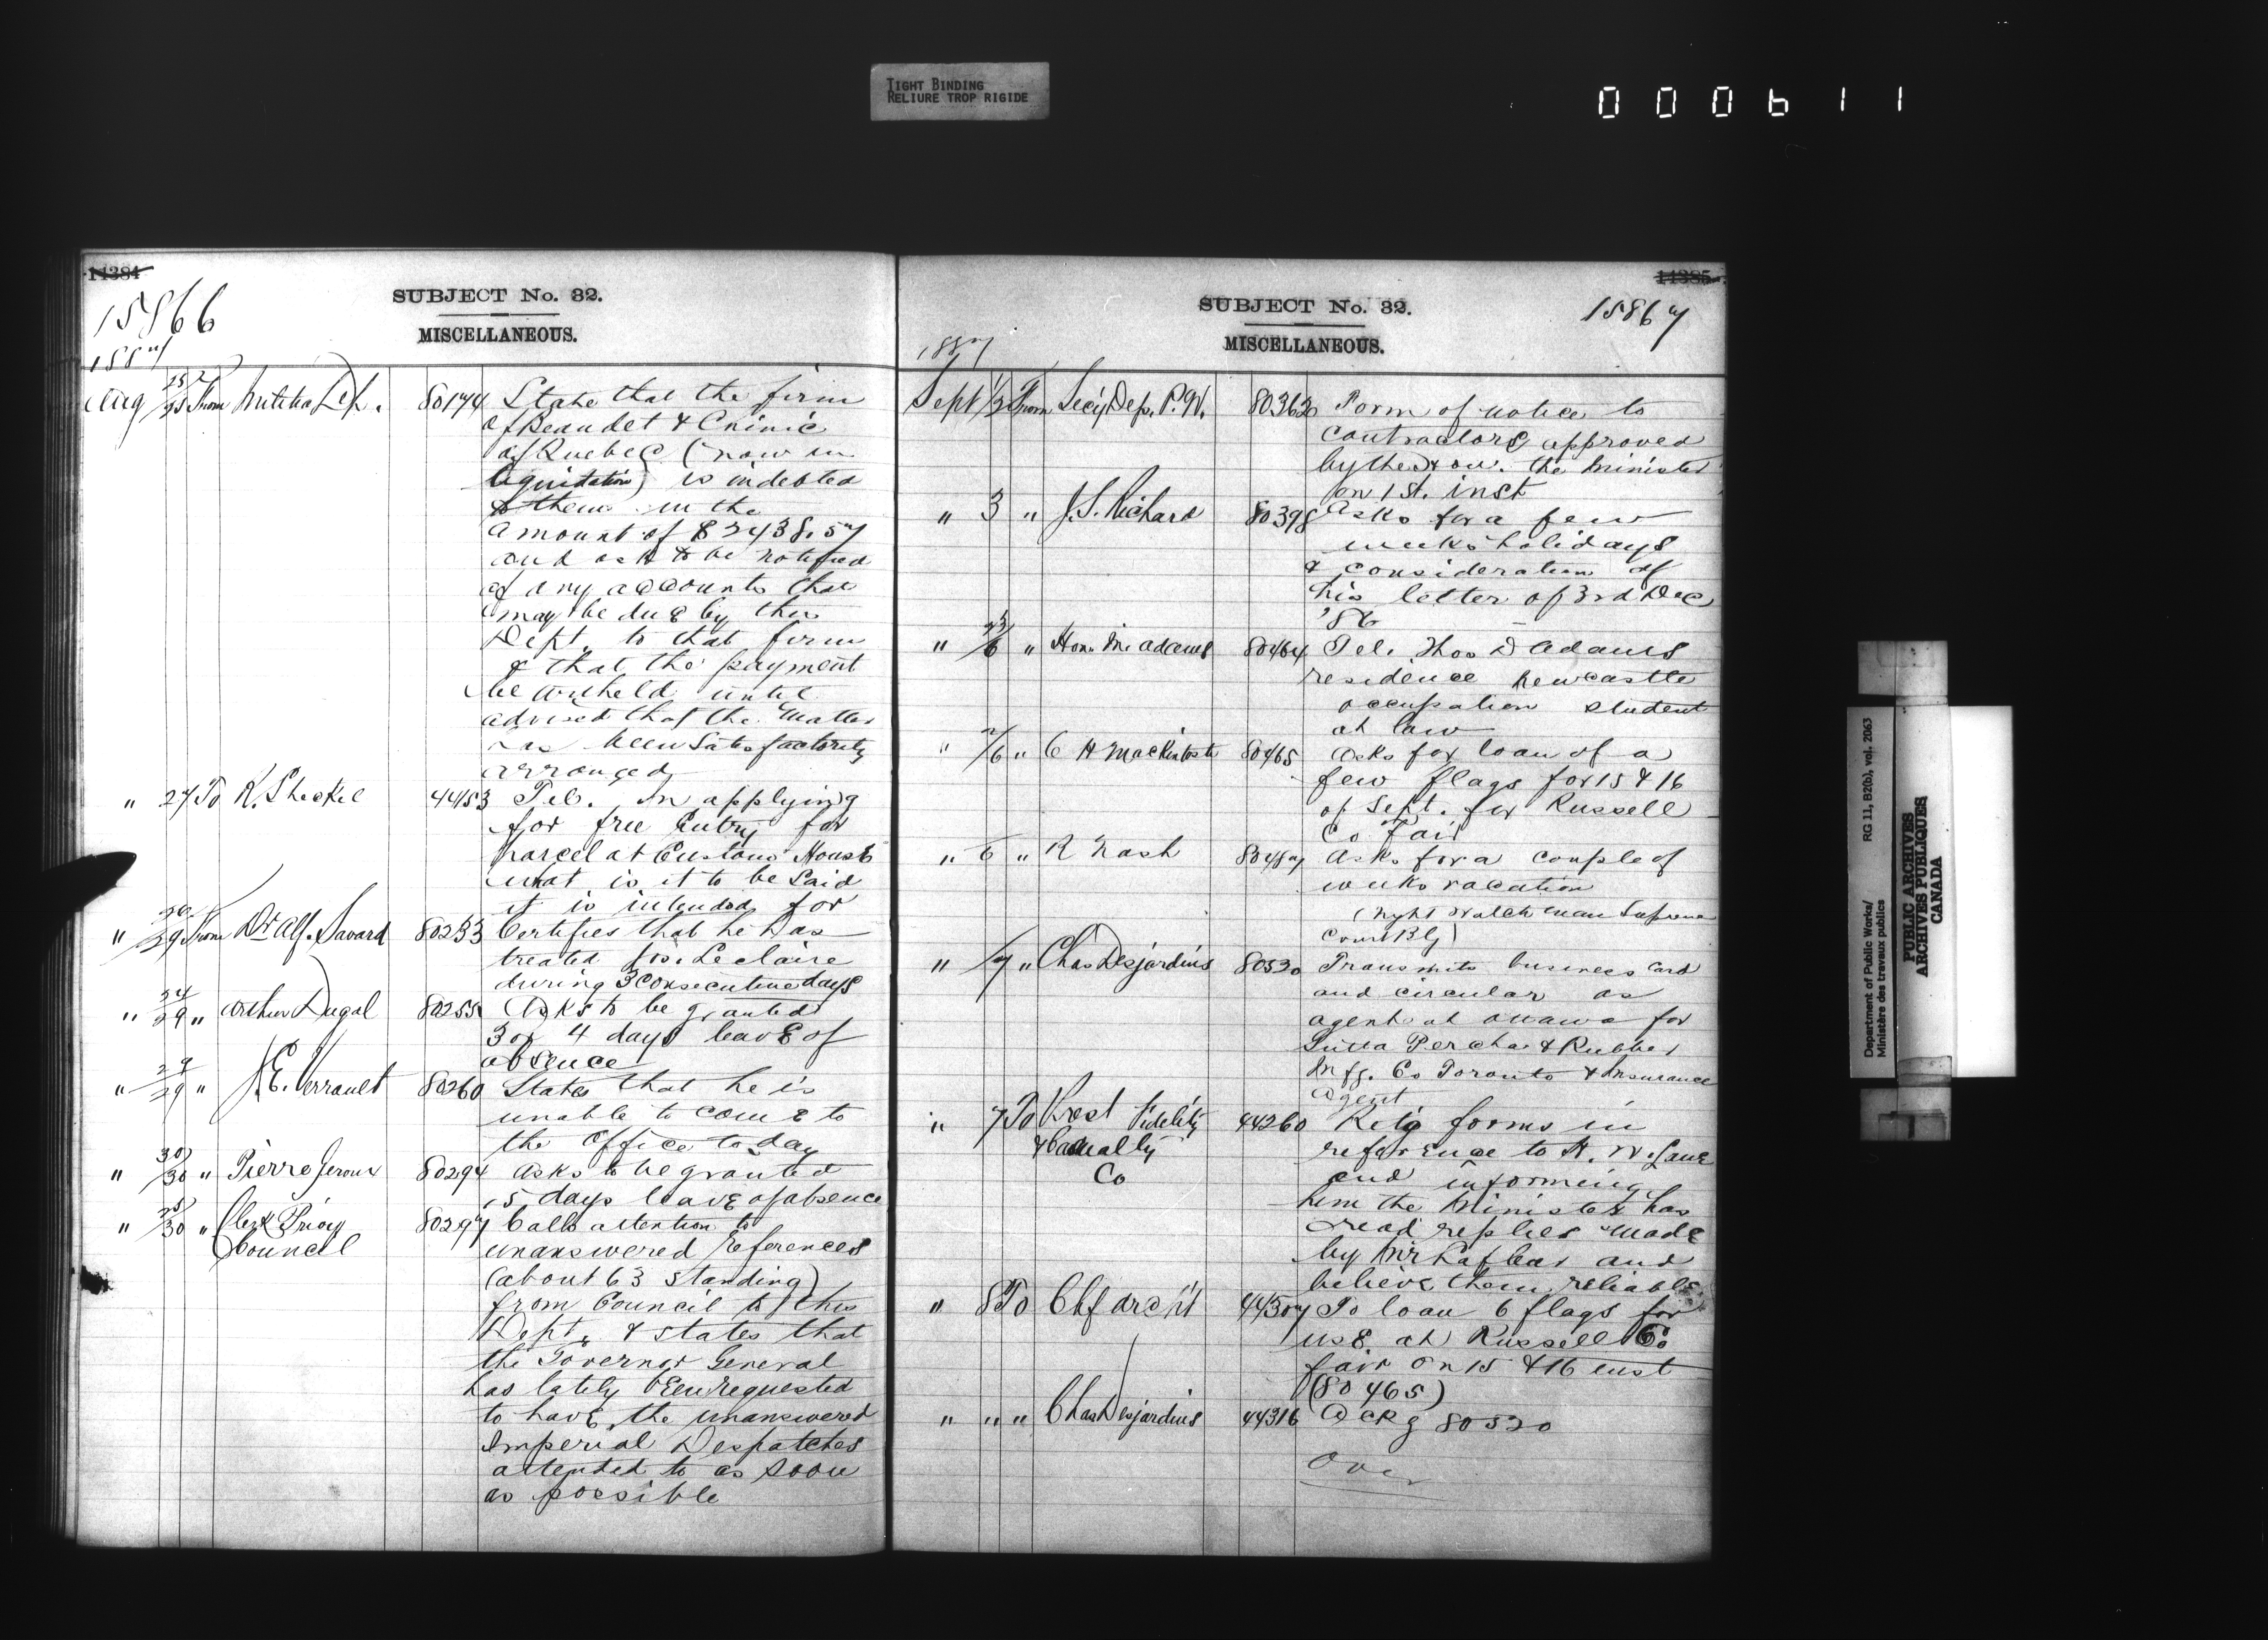 TIGHT BINDING
RELIURE TROP RIGIDE
000611
14384
15866
SUBJECT No. 32.
MISCELLANEOUS.
1887
Aug 25/25 From Militia Dep. 80174 State that the firm
of Beaudet & Chinic
of Quebec (now in
liquidation) is indebted
to them in the
amount of $2438.57
and ask to be notified
of any accounts that
may be due by this
Dept. to that firm
& that the payment
be witheld until
advised that the matter
has been satisfactorily
arranged
" 27 To K. Sheckel 44153 Tel. In applying
for free Entry for
parcel at Customs House
what is it to be said
it is intended for
" /29 From Dr Alf. Savard 80233 Certifies that he has
treated Jos. Leclaire
during 3 consecutive days
" 24/29 " Arthur Dugal 80255 Asks to be granted
3 or 4 days leave of
absence
" 29/29 " J. E. Verrault 80260 States that he is
unable to come to
the Office today
" 30/30 " Pierre Giroux 80294 Asks to be granted
15 days leave of absence
" 25/30 " Clerk Privy 80297 Calls attention to
Council
unanswered references
(about 63 standing)
from Council to this
Dept. & states that
the Governor General
has lately been requested
to have the unanswered
Imperial Despatches
attended to as soon
as possible
14385
15867
SUBJECT No. 32.
MISCELLANEOUS.
1887
Sept 1/2 From Secy Dep. P.W. 80363 Form of notice to
contractors approved
by the Hon. the Minister
on 1st. inst
" 3 " J. S. Richard 80398 Asks for a few
weeks holidays
& consideration of
his letter of 3rd Dec
'86
" /6 " Hon. M. Adams 80464 Tel. Thos D Adams
residence Newcastle
occupation student
at law
" 2/6 " C H Mackintosh 80465 Asks for loan of a
few flags for 15 & 16
of Sept. for Russell
Co Fair
" 6 " R Nash 80487 Asks for a couple of
weeks vacation
(Night Watchman Supreme
Court Blg)
" /7 " Chas Desjardins 80520 Transmits business card
and circular as
agent at Ottawa for
Gutta Percha & Rubber
Mfg. Co Toronto & Insurance
Agent
" 7 To Prest Fidelity 44260 Retg forms in
& Casualty
Co
reference to H. W. Lane
and informing
him the Minister has
read replies made
by Mr Lafleur and
believe them reliable
" 8 To Chf Arch't 44307 To loan 6 flags for
use at Russell Co
fair on 15 & 16 inst
(80465)
" " " Chas Desjardins 44316 Ackg 80520
Over
Department of Public Works/ RG 11, B2(b), vol. 2063
Ministère des travaux publics
PUBLIC ARCHIVES
ARCHIVES PUBLIQUES
CANADA